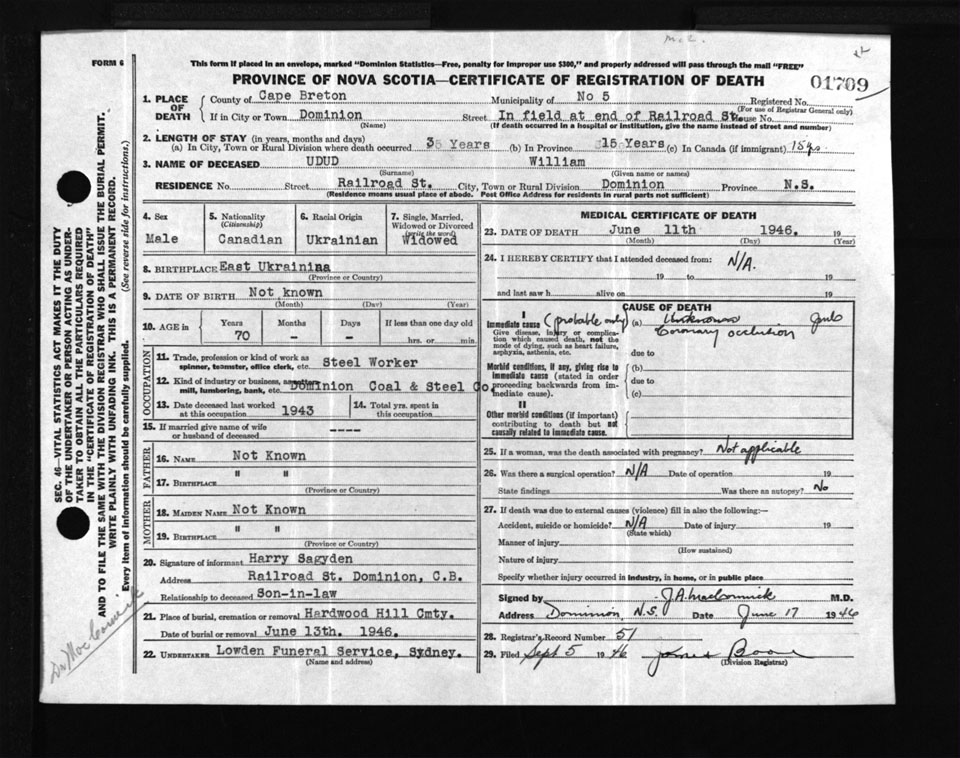 FORM 6
This form if placed in an envelope, marked "Dominion Statistics—Free, penalty for improper use $300," and properly addressed will pass through the mail "FREE"
PROVINCE OF NOVA SCOTIA—CERTIFICATE OF REGISTRATION OF DEATH
01709
1. PLACE OF DEATH
County of Cape Breton Municipality of No 5 Registered No.
(For use of Registrar General only)
If in City or Town Dominion Street In field at end of Railroad St. House No.
(Name) (If death occurred in a hospital or institution, give the name instead of street and number)
2. LENGTH OF STAY (in years, months and days)
(a) In City, Town or Rural Division where death occurred 3 Years (b) In Province 15 Years (c) In Canada (if immigrant) 15 yrs
3. NAME OF DECEASED UDUD William
(Surname) (Given name or names)
RESIDENCE No. Street Railroad St. City, Town or Rural Division Dominion Province N.S.
(Residence means usual place of abode. Post Office Address for residents in rural parts not sufficient)
4. Sex
Male
5. Nationality
(Citizenship)
Canadian
6. Racial Origin
Ukrainian
7. Single, Married, Widowed or Divorced
(write the word)
Widowed
8. BIRTHPLACE East Ukrainina
(Province or Country)
9. DATE OF BIRTH Not known
(Month) (Day) (Year)
10. AGE in
Years Months Days If less than one day old
70 - - hrs. or min.
OCCUPATION
11. Trade, profession or kind of work as
spinner, teamster, office clerk, etc. Steel Worker
12. Kind of industry or business, as
mill, lumbering, bank, etc. Dominion Coal & Steel Co.
13. Date deceased last worked
at this occupation 1943
14. Total yrs. spent in
this occupation
15. If married give name of wife
or husband of deceased ----
FATHER
16. NAME Not Known
17. BIRTHPLACE " "
(Province or Country)
MOTHER
18. MAIDEN NAME Not Known
19. BIRTHPLACE " "
(Province or Country)
20. Signature of informant Harry Sagyden
Address Railroad St. Dominion, C.B.
Relationship to deceased Son-in-law
21. Place of burial, cremation or removal Hardwood Hill Cmty.
Date of burial or removal June 13th. 1946.
22. UNDERTAKER Lowden Funeral Service, Sydney.
(Name and address)
MEDICAL CERTIFICATE OF DEATH
23. DATE OF DEATH June 11th 1946. 19
(Month) (Day) (Year)
24. I HEREBY CERTIFY that I attended deceased from: N/A.
19 to 19
and last saw h alive on 19
CAUSE OF DEATH
I
Immediate cause (probable only) (a) Unknown
Give disease, injury or complication which caused death, not the mode of dying, such as heart failure, asphyxia, asthenia, etc.
Coronary occlusion
due to
Morbid conditions, if any, giving rise to immediate cause (stated in order proceeding backwards from immediate cause).
(b)
due to
(c)
II
Other morbid conditions (if important) contributing to death but not causally related to immediate cause.
25. If a woman, was the death associated with pregnancy? Not applicable
26. Was there a surgical operation? N/A Date of operation 19
State findings Was there an autopsy? No
27. If death was due to external causes (violence) fill in also the following:—
Accident, suicide or homicide? N/A Date of injury 19
(State which)
Manner of injury
(How sustained)
Nature of injury
Specify whether injury occurred in industry, in home, or in public place
Signed by J.A. MacCormick M.D.
Address Dominion, N.S. Date June 17 1946
28. Registrar's Record Number 51
29. Filed Sept 5 1946 James Boone
(Division Registrar)
SEC. 46—VITAL STATISTICS ACT MAKES IT THE DUTY
OF THE UNDERTAKER OR PERSON ACTING AS UNDER-
TAKER TO OBTAIN ALL THE PARTICULARS REQUIRED
IN THE "CERTIFICATE OF REGISTRATION OF DEATH"
AND TO FILE THE SAME WITH THE DIVISION REGISTRAR WHO SHALL ISSUE THE BURIAL PERMIT.
WRITE PLAINLY WITH UNFADING INK. THIS IS A PERMANENT RECORD.
Every item of information should be carefully supplied. (See reverse side for instructions.)
Dr MacCormick